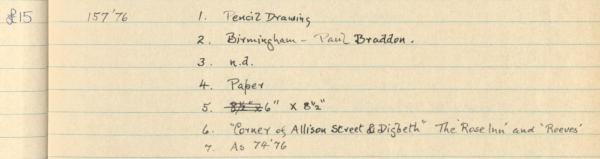 £15 157'76 1. Pencil Drawing
2. Birmingham - Paul Braddon.
3. n.d.
4. Paper
5. 8½" x 6" x 8½"
6. "Corner of Allison Street & Digbeth" The 'Rose Inn' and 'Reeves'
7. As 74'76